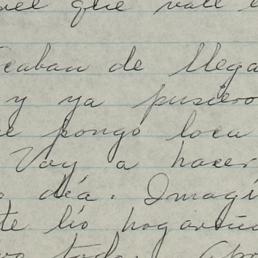 que vale
acaban de llega
y ya pusiero
e pongo loca
Voy a hacer
o día. Imagi
te lío hogareñ
todo. Apo